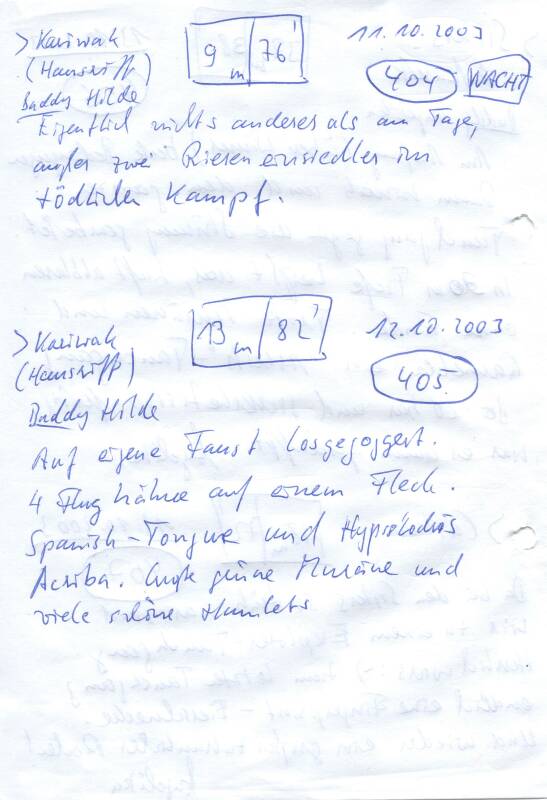 > Kariwak
9 m 76'
11.10.2003
(Hausriff)
404 NACHT
Buddy Hilde
Eigentlich nichts anderes als am Tage,
außer zwei Rieseneinsiedler im
tödlichen Kampf.
> Kariwak
13 m 82'
12.10.2003
(Hausriff)
405
Buddy Hilde
Auf eigene Faust losgegoggert.
4 Flughähne auf einem Fleck.
Spanish-Tongue und
Acriba. Große grüne Muräne und
viele schöne Hamlets